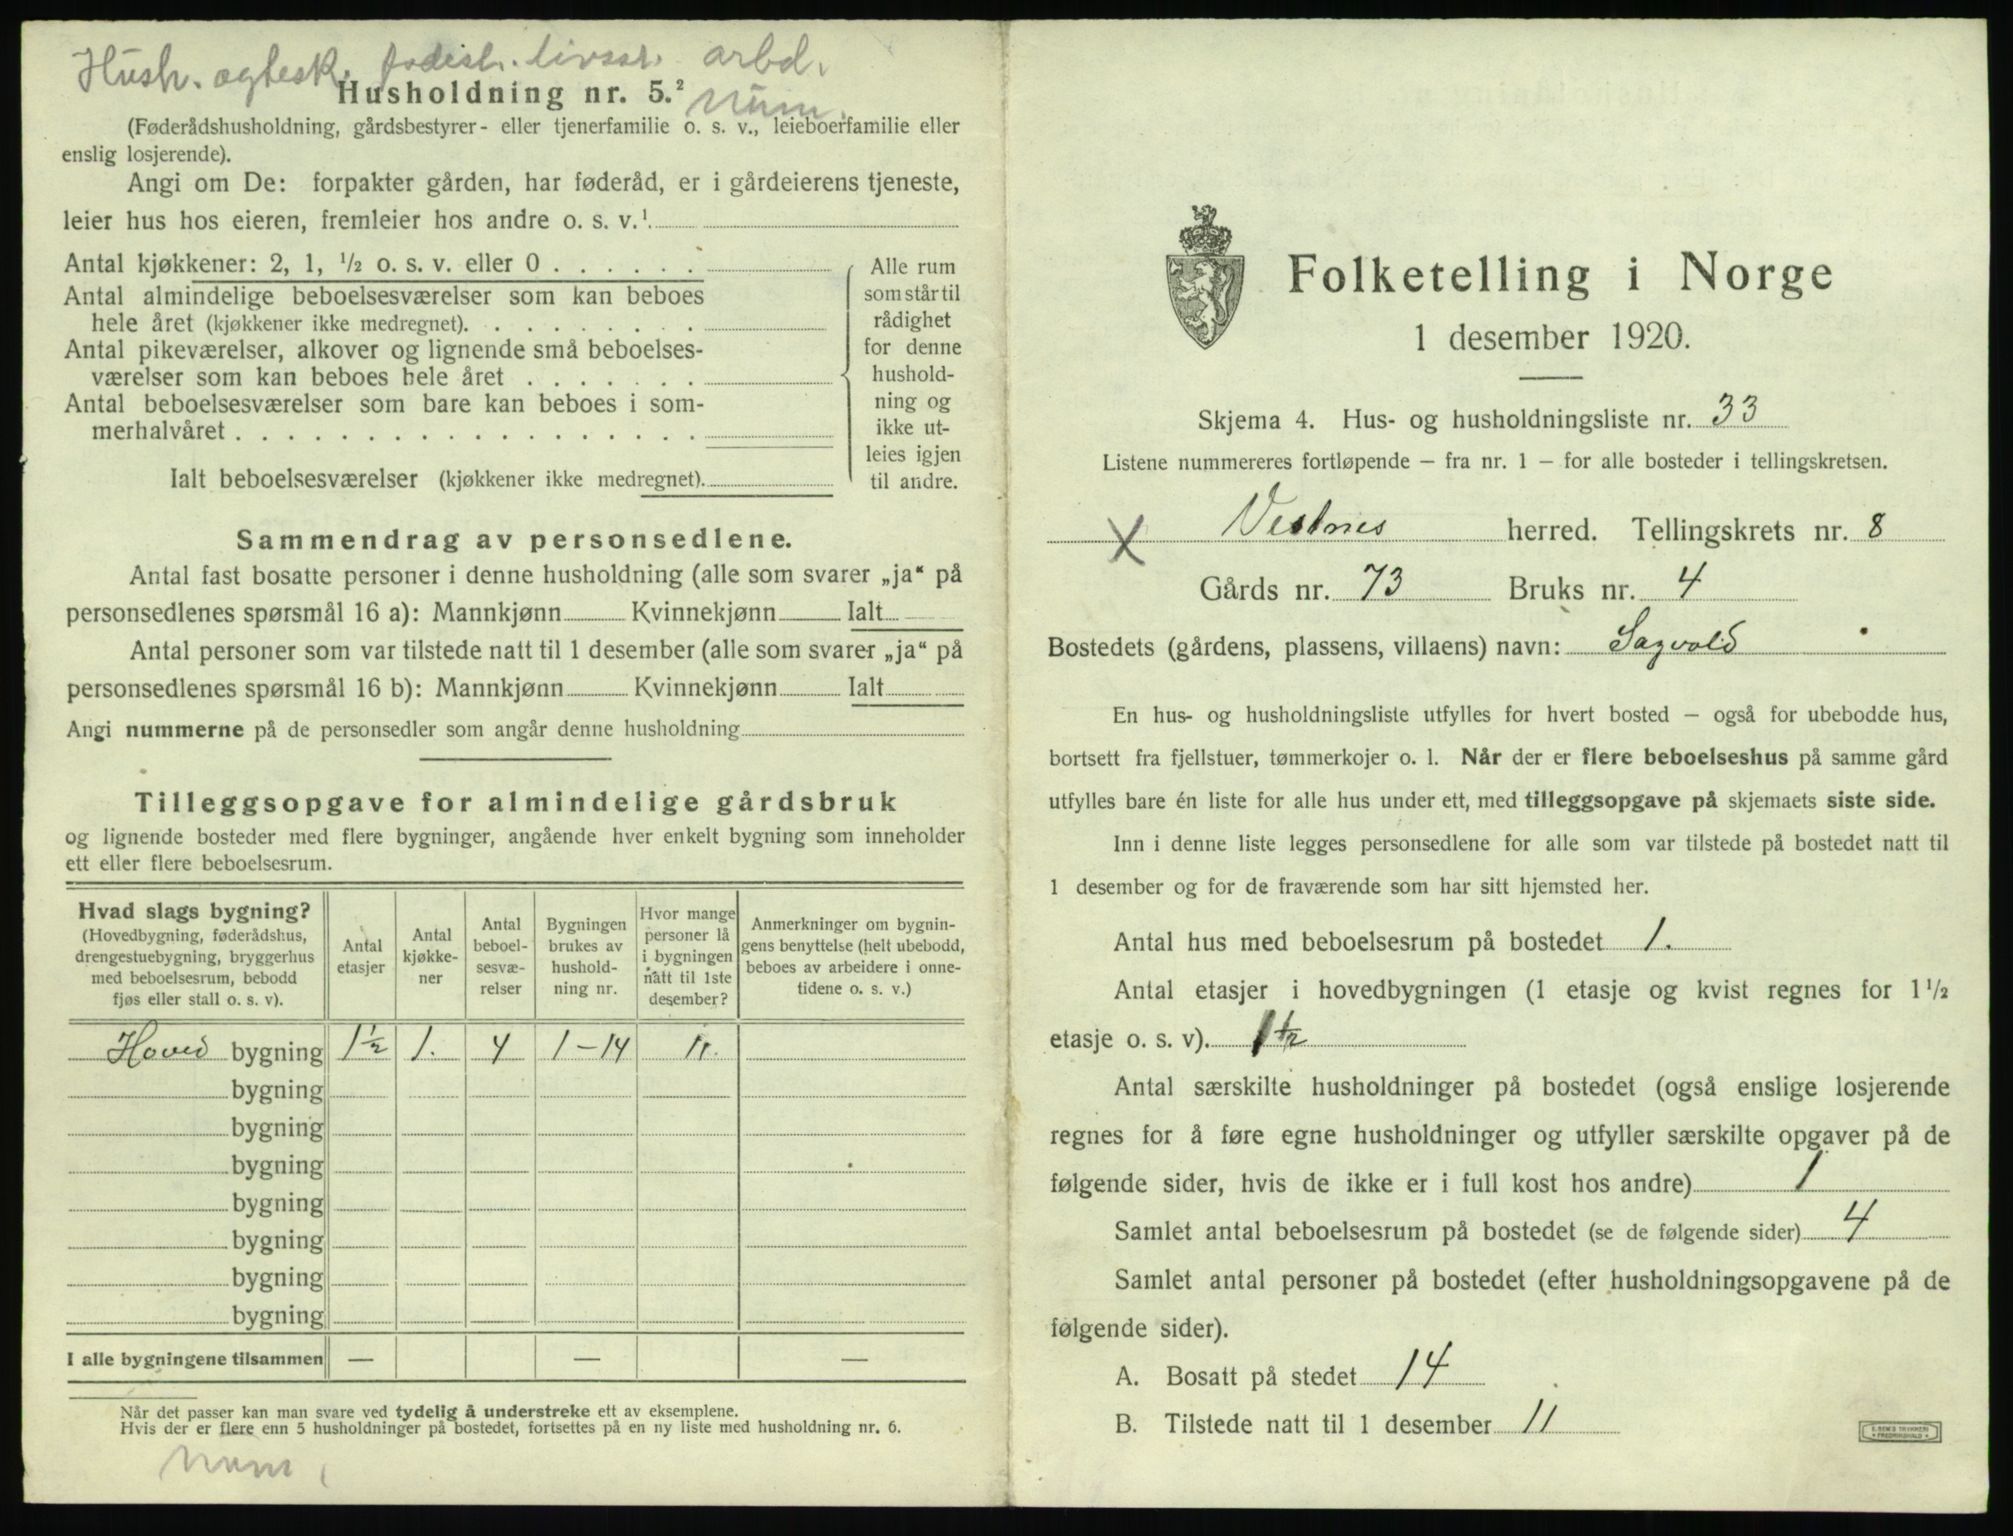 Hush. egtesk. fødest. livsst. arbd.
Husholdning nr. 5.²
Num.
(Føderådshusholdning, gårdsbestyrer- eller tjenerfamilie o. s. v., leieboerfamilie eller
enslig losjerende).
Angi om De: forpakter gården, har føderåd, er i gårdeierens tjeneste,
leier hus hos eieren, fremleier hos andre o. s. v.¹
Antal kjøkkener: 2, 1, ½ o. s. v. eller 0
Antal almindelige beboelsesværelser som kan beboes
hele året (kjøkkener ikke medregnet).
Antal pikeværelser, alkover og lignende små beboelses-
værelser som kan beboes hele året
Antal beboelsesværelser som bare kan beboes i som-
merhalvåret
Ialt beboelsesværelser (kjøkkener ikke medregnet).
Alle rum
som står til
rådighet
for denne
hushold-
ning og
ikke ut-
leies igjen
til andre.
Sammendrag av personsedlene.
Antal fast bosatte personer i denne husholdning (alle som svarer „ja“ på
personsedlenes spørsmål 16 a): Mannkjønn Kvinnekjønn Ialt
Antal personer som var tilstede natt til 1 desember (alle som svarer „ja“ på
personsedlenes spørsmål 16 b): Mannkjønn Kvinnekjønn Ialt
Angi nummerne på de personsedler som angår denne husholdning
Tilleggsopgave for almindelige gårdsbruk
og lignende bosteder med flere bygninger, angående hver enkelt bygning som inneholder
ett eller flere beboelsesrum.
Hvad slags bygning?
(Hovedbygning, føderådshus,
drengestuebygning, bryggerhus
med beboelsesrum, bebodd
fjøs eller stall o. s. v).
Antal
etasjer
Antal
kjøkke-
ner
Antal
beboel-
sesvæ-
relser
Bygningen
brukes av
hushold-
ning nr.
Hvor mange
personer lå
i bygningen
natt til 1ste
desember?
Anmerkninger om bygnin-
gens benyttelse (helt ubebodd,
beboes av arbeidere i onne-
tidene o. s. v.)
Hoved bygning 1½ 1. 4 1-14 11.
bygning
bygning
bygning
bygning
bygning
bygning
bygning
I alle bygningene tilsammen — — —
Når det passer kan man svare ved tydelig å understreke ett av eksemplene.
Hvis der er flere enn 5 husholdninger på bostedet, fortsettes på en ny liste med husholdning nr. 6.
Num.
Folketelling i Norge
1 desember 1920.
Skjema 4. Hus- og husholdningsliste nr. 33
Listene nummereres fortløpende — fra nr. 1 — for alle bosteder i tellingskretsen.
X Vestnes herred. Tellingskrets nr. 8
Gårds nr. 73 Bruks nr. 4
Bostedets (gårdens, plassens, villaens) navn: Sagvold
En hus- og husholdningsliste utfylles for hvert bosted — også for ubebodde hus,
bortsett fra fjellstuer, tømmerkojer o. l. Når der er flere beboelseshus på samme gård
utfylles bare én liste for alle hus under ett, med tilleggsopgave på skjemaets siste side.
Inn i denne liste legges personsedlene for alle som var tilstede på bostedet natt til
1 desember og for de fraværende som har sitt hjemsted her.
Antal hus med beboelsesrum på bostedet 1.
Antal etasjer i hovedbygningen (1 etasje og kvist regnes for 1½
etasje o. s. v). 1½
Antal særskilte husholdninger på bostedet (også enslige losjerende
regnes for å føre egne husholdninger og utfyller særskilte opgaver på de
følgende sider, hvis de ikke er i full kost hos andre) 1
Samlet antal beboelsesrum på bostedet (se de følgende sider) 4
Samlet antal personer på bostedet (efter husholdningsopgavene på de
følgende sider).
A. Bosatt på stedet 14
B. Tilstede natt til 1 desember 11